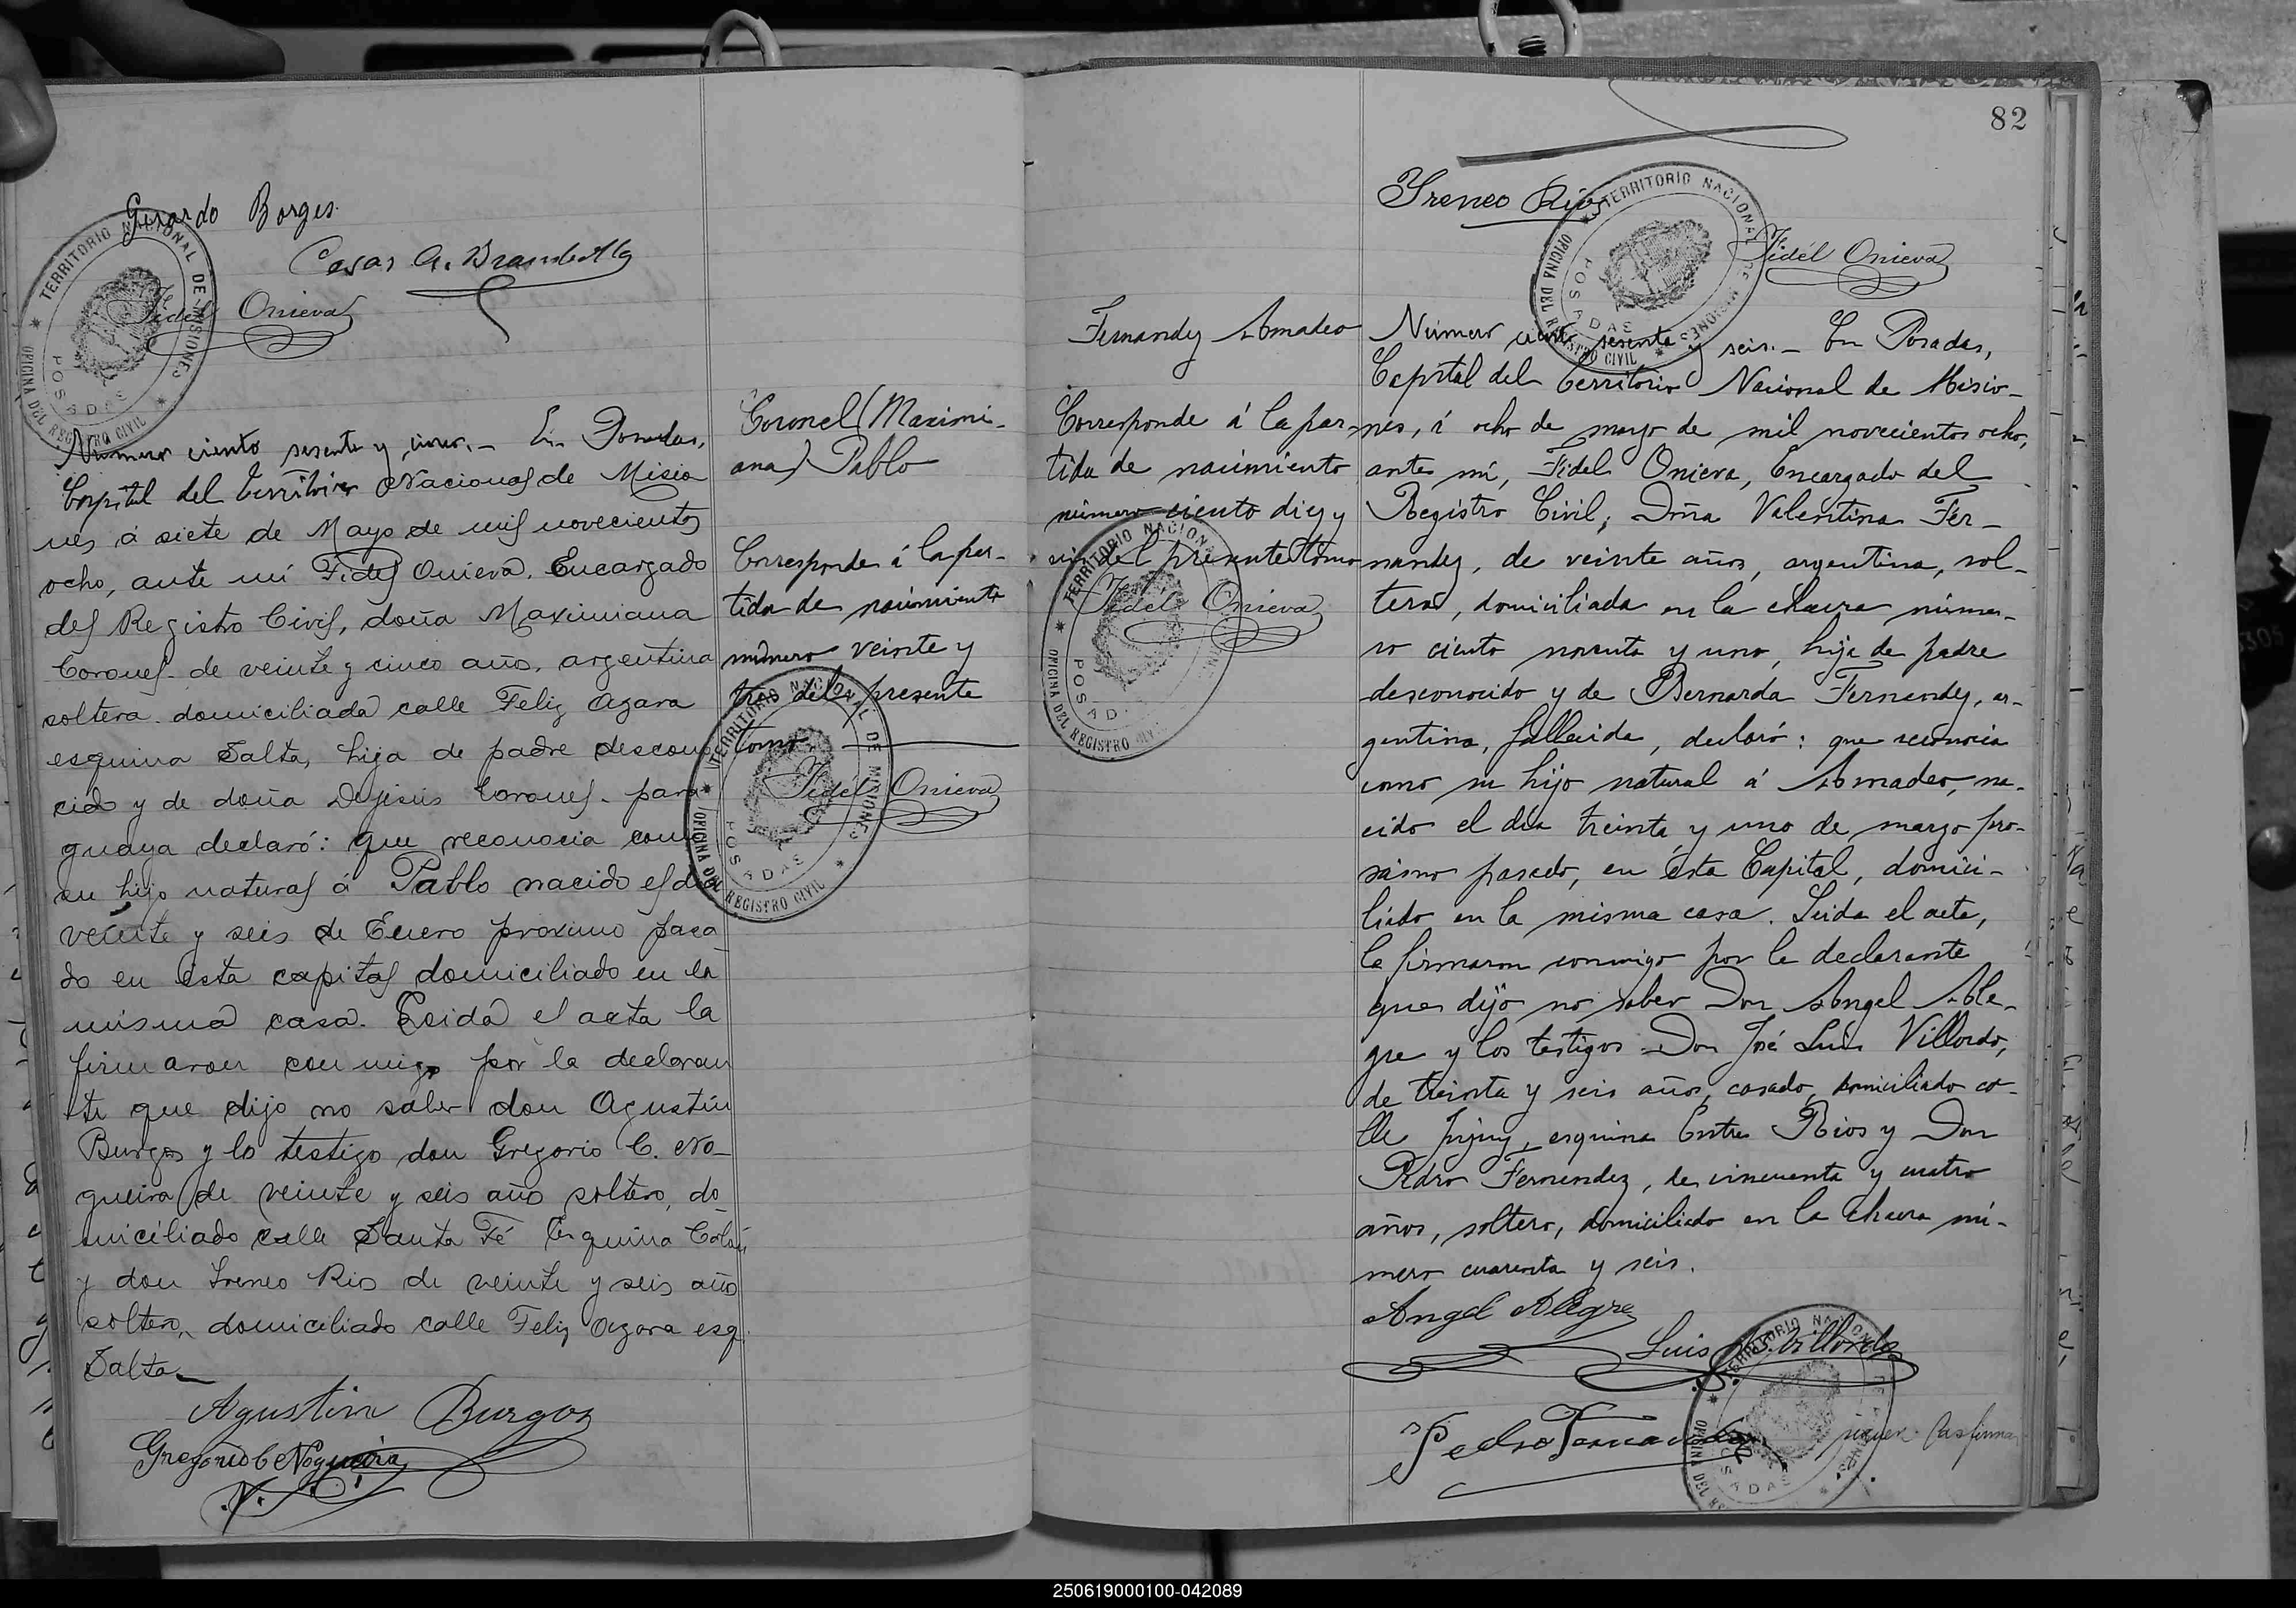 Gerardo Borges
Cesar A. Brambilla
Fidel Onieva
TERRITORIO NACIONAL DE MISIONES
OFICINA DEL REGISTRO CIVIL
POSADAS
Número ciento sesenta y cinco.- En Posadas,
Capital del Territorio Nacional de Misio
nes á siete de Mayo de mil novecientos
ocho, ante mí Fidel Onieva, Encargado
del Registro Civil, doña Maximiana
Coronel de veinte y cinco año, argentina
soltera domiciliada calle Feliz Azara
esquina Salta, hija de padre descono
cido y de doña Dejesús Coronel - para
guaya declaró: que reconocia como
su hijo natural á Pablo nacido el día
veinte y seis de Enero proximo pasa
do en esta capital domiciliado en la
misma casa. Leida el acta la
firmaron conmigo por la declaran
te que dijo no saber don Agustin
Burgos y lo testigo don Gregorio C. No-
gueira de veinte y seis año soltero, do
miciliado calle Santa Fé Esquina Colón
y don Ireneo Rios de veinte y seis año
soltero, domiciliado calle Feliz Azara esq.
Salta
Agustin Burgos
Gregorio C Nogueira
Coronel (Maximi-
ana) Pablo
Corresponde á la par-
tida de nacimiento
número veinte y
tres del presente
tomo.
Fidel Onieva
TERRITORIO NACIONAL DE MISIONES
OFICINA DEL REGISTRO CIVIL
POSADAS
82
Ireneo Rios
Fidél Onieva
TERRITORIO NACIONAL DE MISIONES
OFICINA DEL REGISTRO CIVIL
POSADAS
Fernandez Amadeo
Corresponde á la par-
tida de nacimiento
número ciento diez y
del presente tomo
Fidel Onieva
TERRITORIO NACIONAL
OFICINA DEL REGISTRO CIVIL
POSAD
Número ciento sesenta y seis.- En Posadas,
Capital del Territorio Nacional de Misio-
nes, á ocho de mayo de mil novecientos ocho,
ante mí, Fidel Onieva, Encargado del
Registro Civil, Doña Valentina Fer-
nandez, de veinte años, argentina, sol-
tera, domiciliada en la chacra núme-
ro ciento noventa y uno, hija de padre
desconocido y de Bernarda Fernandez, ar-
gentina, fallecida, declaró: que reconocia
como su hijo natural á Amadeo, na-
cido el día treinta y uno de marzo pró-
ximo pasado, en ésta Capital, domici-
liado en la misma casa. Leida el acta,
la firmaron conmigo por la declarante
que dijo no saber Don Angel Ale-
gre y los testigos Don José Luis Villordo,
de treinta y seis años, casado, domiciliado ca-
lle Jujuy, esquina Entre Rios y Don
Pedro Fernandez, de cincuenta y cuatro
años, soltero, domiciliado en la chacra nú-
mero cuarenta y seis.
Angel Alegre
Luis Villordo
Pedro Fernandez
TERRITORIO NACIONAL DE
OFICINA DEL
POSADAS
250619000100-042089